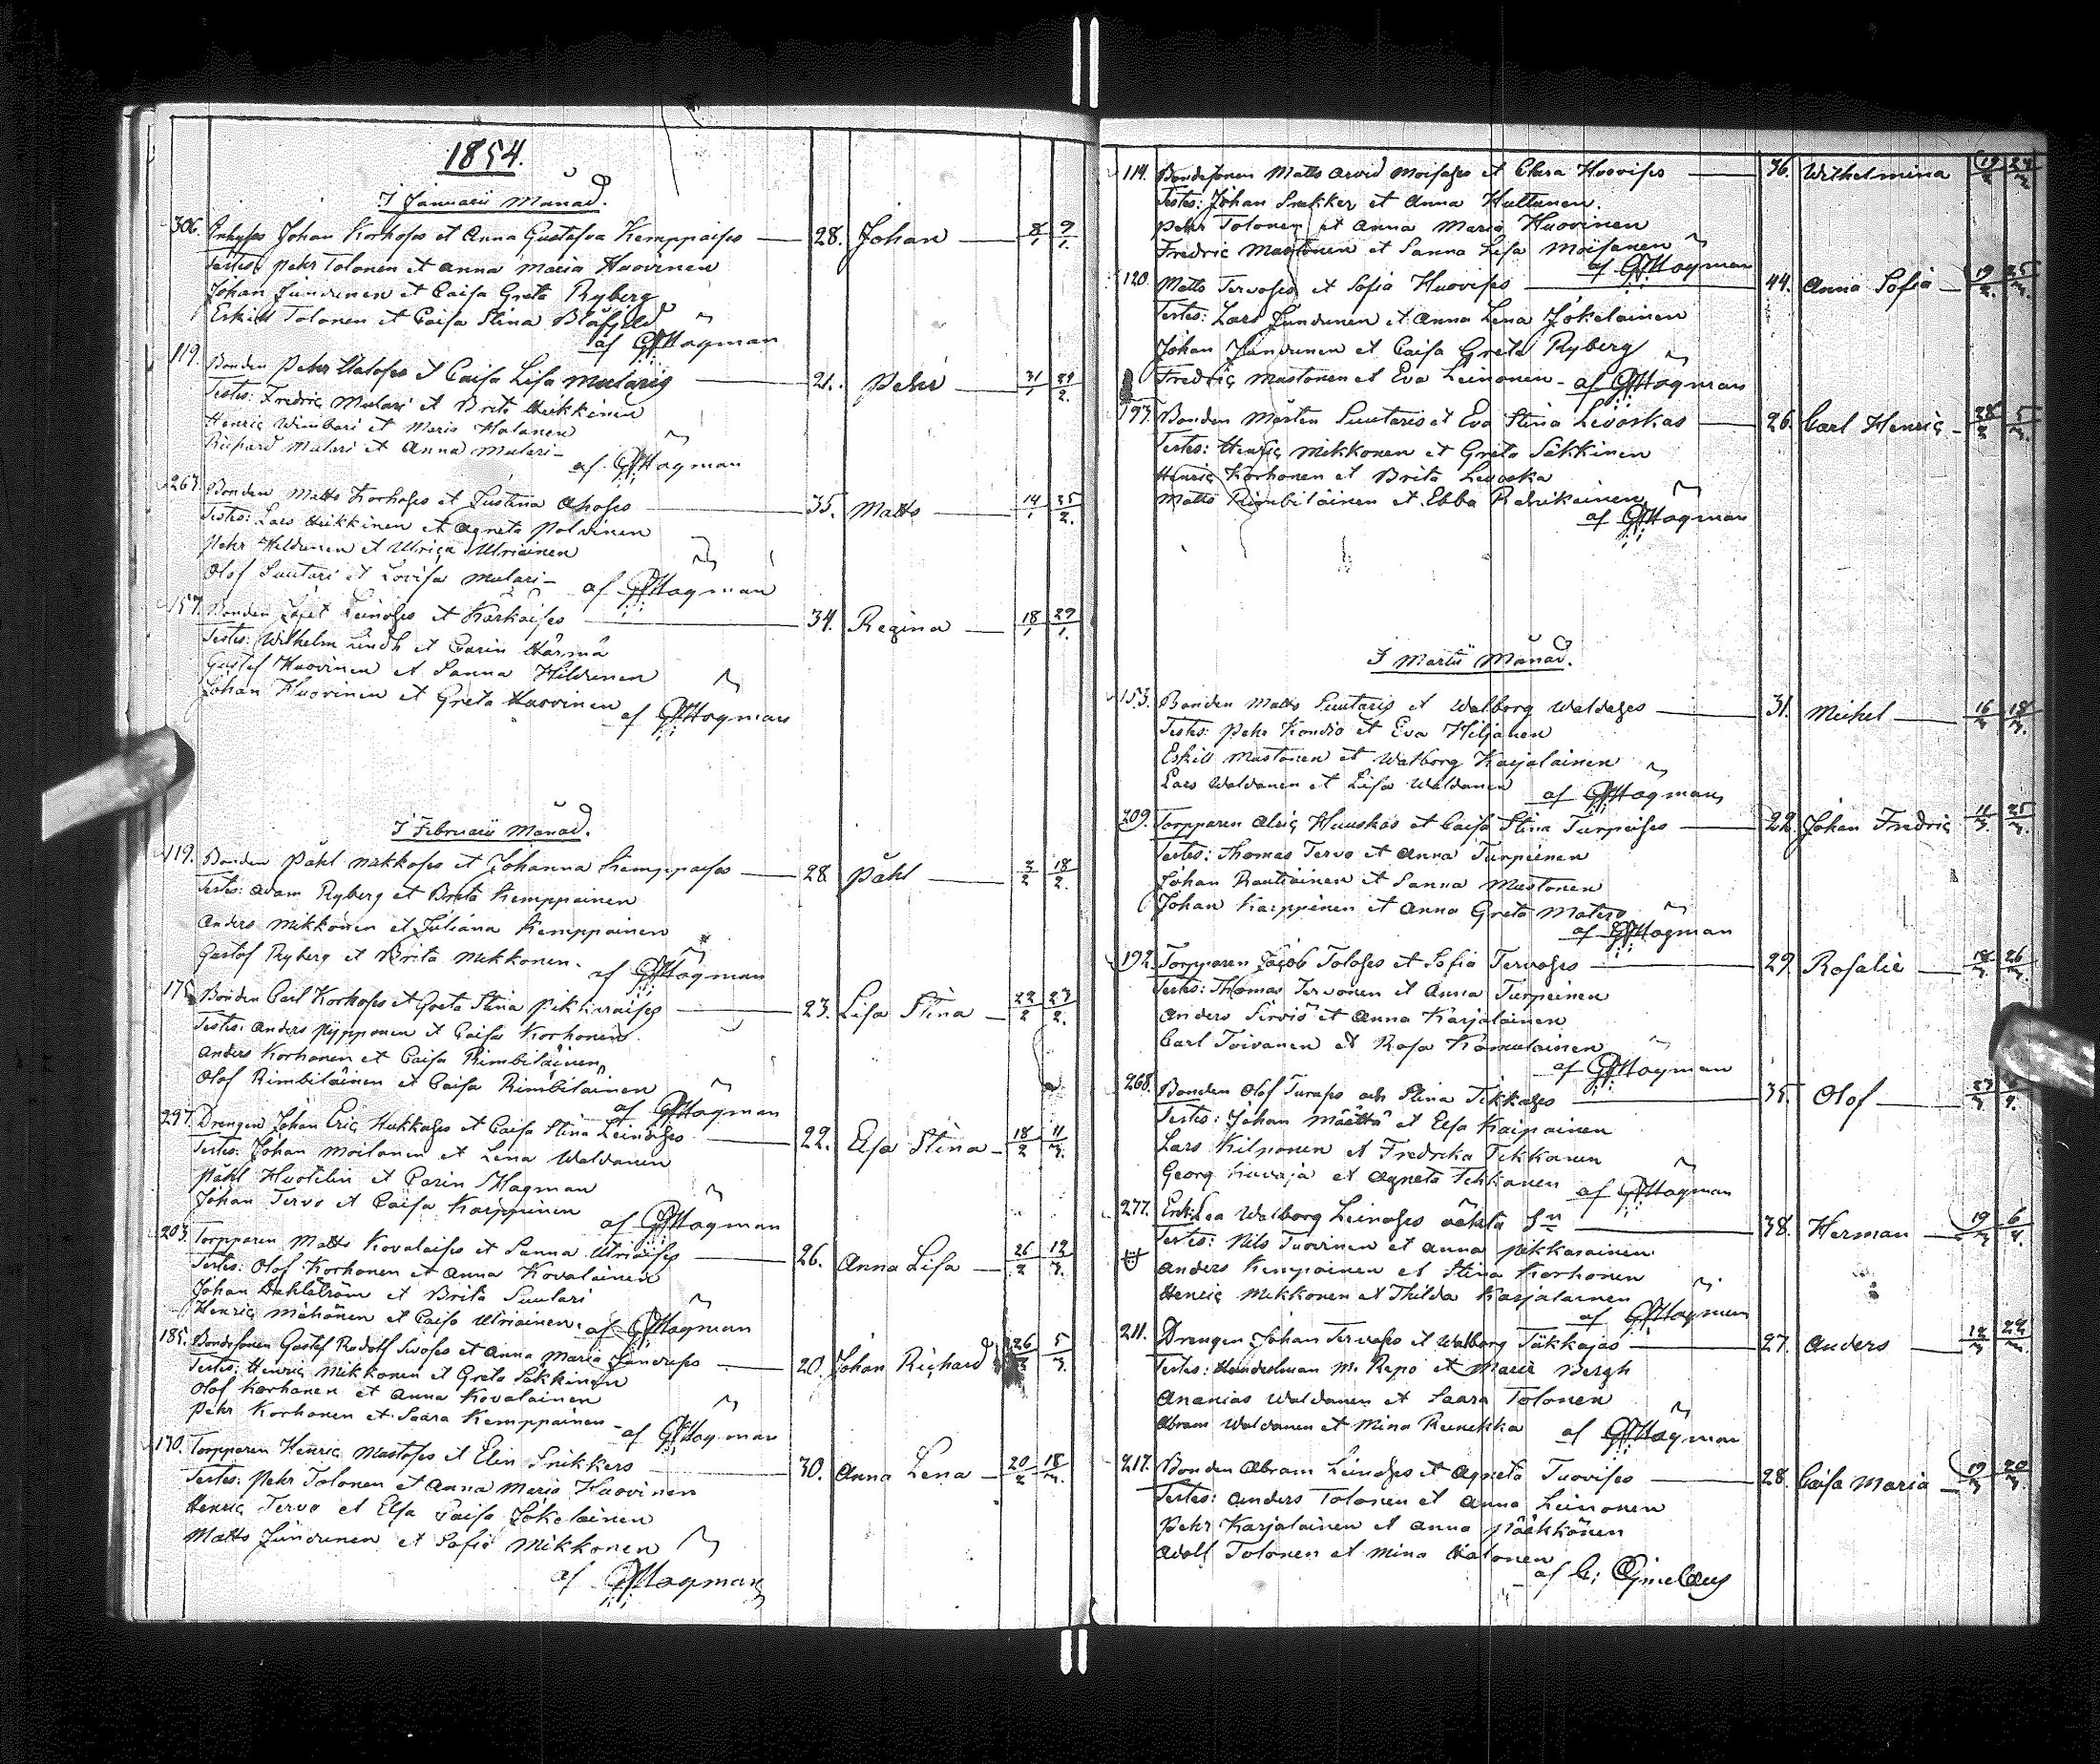 1854.
I Januarii Månad.
306. Inhyses Johan Korhoses et Anna Gustafva Kemppaises — 28. Johan — 8/1 9/1.
Testes: Pehr Tolonen et Anna Maria Huovinen
Johan Juntunen et Caisa Greta Ryberg
Eskill Tolonen et Caisa Stina Blåfjeld
af GHagman
119. Bonden Pehr Haloses et Caisa Lisa Mularis — 21. Pehr — 31/1 /2.
Testes: Fredric Mulari et Brita Heikkinen
Henric Wimbari et Maria Halonen
Richard Mulari et Anna Mulari —
af GHagman
267. Bonden Matts Korhoses et Justina Ahoses — 35. Matts — 14/1 /2.
Testes: Lars Heikkinen et Agneta Polvinen
Pehr Hildunen et Ulrica Utriainen
Olof Suutari et Lovisa Mulari — af GHagman
157. Bonden Leinoses et Karkaises — 34. Regina — 18/1 29/1.
Testes: Wilhelm Lindh et Carin Härmä
Gustef Huovinen et Sanna Hildunen
Johan Huovinen et Greta Huovinen
af GHagman
I Februarii Månad.
119. Bonden Påhl Mikkoses et Johanna Kemppaises — 28 Påhl — 3/2 18/2.
Testes: Adam Ryberg et Brita Kemppainen
Anders Mikkonen et Juliana Kemppainen
Gustof Ryberg et Brita Mikkonen.
af GHagman
175. Bonden Carl Korhoses et Greta Stina Pikkuraises — 23. Lisa Stina — 22/2 27/2.
Testes: Anders Pypponen et Caisa Korhonen
Anders Korhonen et Caisa Rimbiläinen,
Olof Rimbiläinen et Caisa Rimbiläinen
af GHagman
297. Drengen Johan Eric Hukkases et Caisa Stina Leinoses — 22. Elsa Stina — 18/2 11/3.
Testes: Johan Moilanen et Lena Waldanen
Påhl Huotelin et Carin Hagman
Johan Tervo et Caisa Karppinen
af GHagman
203. Torpparen Matts Kovalaises et Sanna Utriaises — 26. Anna Lisa — 26/2 12/3.
Testes: Olof Korhonen et Anna Kovalainen
Johan Dahlström et Brita Suutari
Henric Mähönen et Caisa Utriainen. af GHagman
185. Bondesonen Gustaf Rudolf Sivoses et Anna Maria Junduses — 20. Johan Richard 26/2 5/3.
Testes: Henric Mikkonen et Greta Säkkinen
Olof Korhonen et Anna Kovalainen
Pehr Korhonen et Saara Kemppainen —
af GHagman
130. Torpparen Henric Mustoses et Elin Snikkers — 30. Anna Lena — 20/2 18/3.
Testes: Pehr Tolonen et Anna Maria Huovinen
Henric Tervo et Elsa Caisa Jokelainen
Matts Jundunen et Sofia Mikkonen
af GHagman
114. Bondesonen Matts Arvid Moisases et Clara Huovises — 36. Wilhelmina 19/2 24/2
Testes: Johan Snikker et Anna Huttunen.
Pehr Tolonen et Anna Maria Huovinen
Fredric Mustonen et Sanna Lisa Moisanen
af GHagman
120. Matts Tervoses et Sofia Huovises — 44. Anna Sofia — 19/2. 25/2.
Testes: Lars Jundunen et Anna Lena Jokelainen
Johan Jundunen et Caisa Greta Ryberg
Fredric Mustonen et Eva Leinonen — af GHagman
197. Bonden Mårten Suutaris et Eva Stina Levoskas — 26. Carl Henric — 28/2 5/3.
Testes: Henric Mikkonen et Greta Säkkinen
Henric Korhonen et Brita Levoska
Matts Rimbiläinen et Ebba Rahikainen
af GHagman
I Martii Månad.
153. Bonden Matts Suutaris et Walborg Waldases — 31. Michel — 16/3 18/3.
Testes: Pehr Kondio et Eva Hiljanen
Eskill Mustonen et Walborg Karjalainen
Lars Waldanen et Lisa Waldanen
af GHagman
209. Torpparen Alric Huuskas et Caisa Stina Turpeises — 22. Johan Fredric 11/3. 25/3.
Testes: Thomas Tervo et Anna Turpeinen
Johan Rautiainen et Sanna Mustonen
Johan Karppinen et Anna Greta Matero
af GHagman
192. Torpparen Jacob Toloses et Sofia Tervoses — 29. Rosalie — 18/3 26/3.
Testes: Thomas Tervonen et Anna Turpeinen
Anders Sirviö et Anna Karjalainen
Carl Toivanen et Rosa Komulainen
af GHagman
268. Bonden Olof Turuses och Stina Tikkases — 35. Olof — 27/3
Testes: Johan Määttä et Elsa Kaipainen
Lars Kilponen et Fredrika Tikkanen
Georg Kuvaja et Agneta Tikkanen
af GHagman
277. Enkan Walborg Leinoses oächta Sn — 38. Herman — 19/3 6/4.
Testes: Nils Tuovinen et Anna Pikkarainen
Anders Kempainen et Stina Korhonen
Henric Mikkonen et Thilda Karjalainen
af GHagman
211. Drengen Johan Tervoses et Walborg Täkkäjäs — 27. Anders — 12/3 22/3.
Testes: Handelsman M. Repo et Maria Bergh
Ananias Waldanen et Saara Tolonen
Abram Waldanen et Mina Runckka
af GHagman
217. Bonden Abram Leinoses et Agneta Tuovises — 28. Caisa Maria — 19/3 20/3.
Testes: Anders Tolonen et Anna Leinonen
Pehr Karjalainen et Anna Pääkkönen
Adolf Tolonen et Mina Halonen